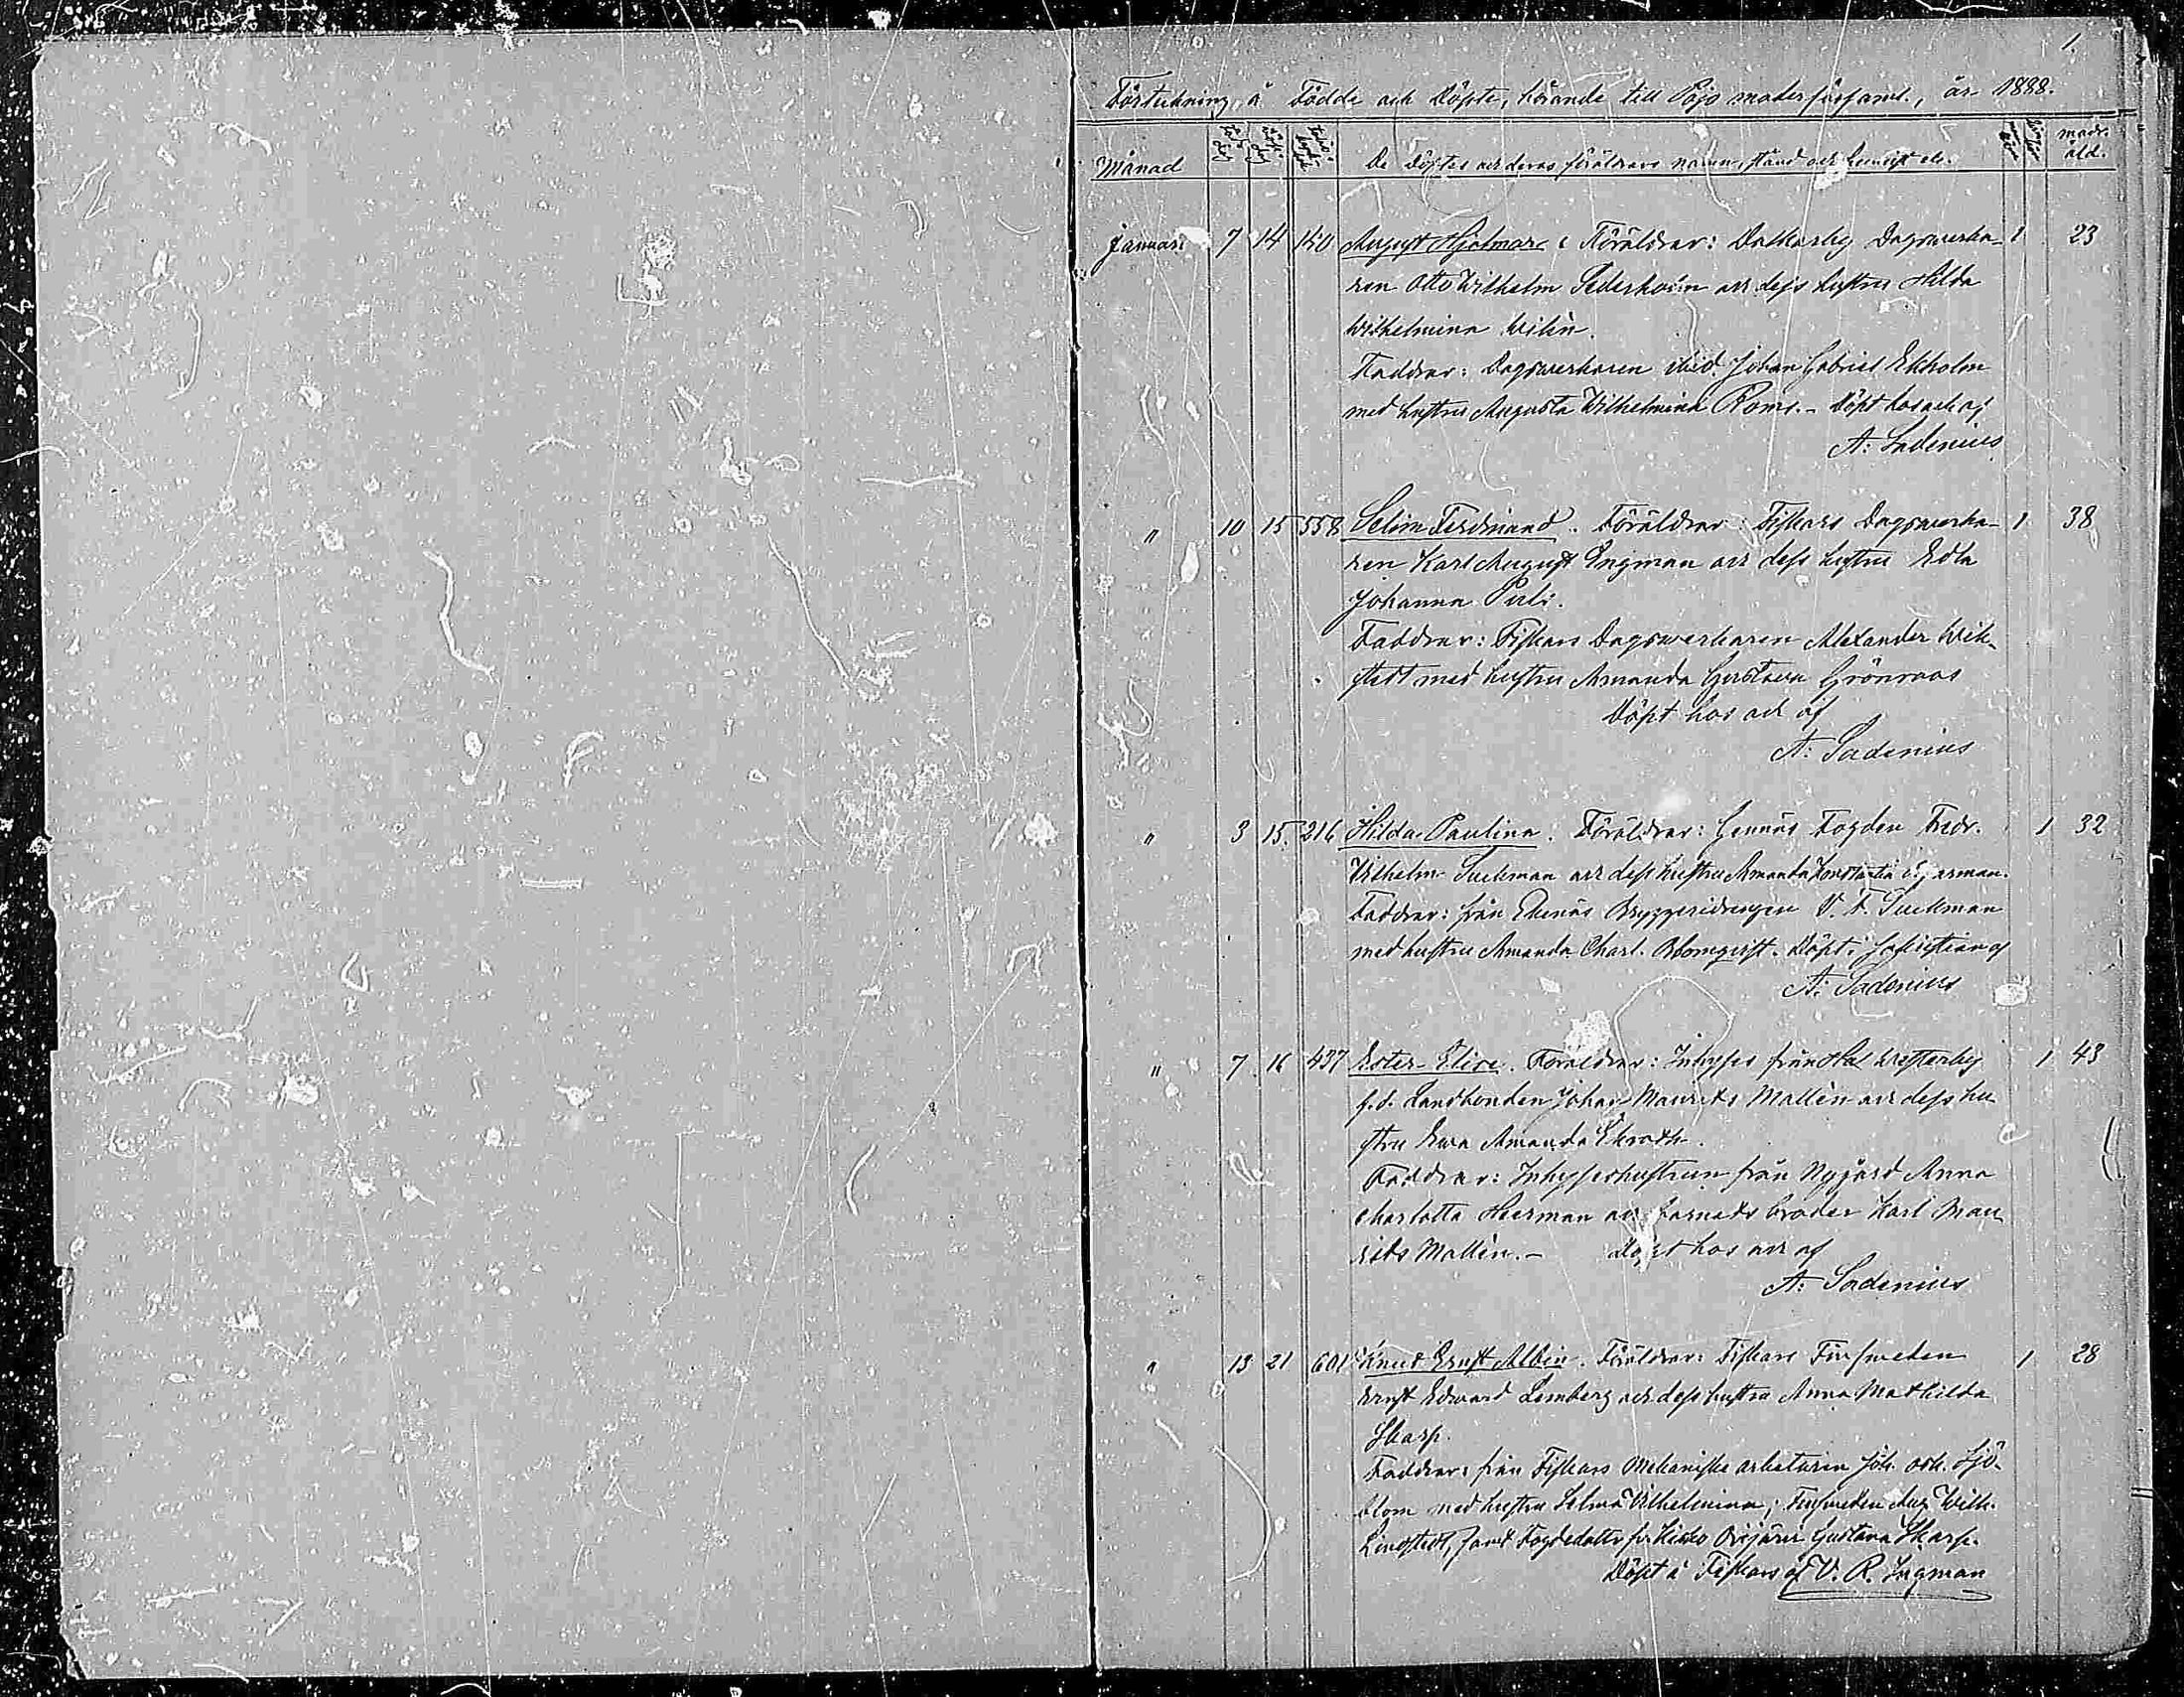 1.
Förteckning å Födde och Döpte, hörande till Pojo moderförsaml., år 1888.
Månad De Döptes och deras föräldrars namn, stånd och hemvist etc. modr. åld.
Januari 7 14 140 August Hjalmar. Föräldrar: Dalkarby Dagsverka- 1 23
ren Otto Wilhelm Sederholm och dess hustru Hilda
Wilhelmina Wilén.
Faddrar: Dagsverkaren ibid. Johan Gabriel Ekholm
med hustru Augusta Wilhelmina Roms. – Döpt hos och af
A: Sadenius
" 10 15 558 Selim Ferdinand. Föräldrar: Fiskars Dagsverka- 1 38
ren Karl August Engman och dess hustru Edla
Johanna
Faddrar: Fiskars Dagsverkaren Alexander Wik-
stedt med hustru Amanda Gustava Grönroos
Döpt hos och af
A: Sadenius
" 3 15. 216 Hilda Paulina. Föräldrar: Gennäs Fogden Fredr. 1 32
Vilhelm Tuckman och dess hustru Amanda Konstantia
Faddrar: från Ekenäs Bryggeridrengen V. F. Tuckman
med hustru Amanda Charl. Blomqvist. Döpt i sakristian af
A: Sadenius
" 7 16 437 Ester Elise. Föräldrar: Inhyses från Westerby 1 43
f.d. Landbonden Johan Maurits Mallèn och dess hu
stru Ewa Amanda Ekroth.
Faddrar: Inhyseshustrun från Nygård Anna
Charlotta Heerman och barnets broder Karl Mau
rits Mallèn. – Döpt hos och af
A: Sadenius
" 13 21 601 Knut Ernst Albin. Föräldrar: Fiskars Finsmeden 1 28
Ernst Edward Lemberg och dess hustru Anna Mathilda
Skarp.
Faddrar: från Fiskars Mekaniske arbetaren Joh. Osk. Sjö-
blom med hustru Selma Vilhelmina; Finsmeden Aug. Wilh.
Lindstedt, samt Fogdedotter fr. Kisko Orijärvi Gustava Skarp.
Döpt å Fiskars af V. R. Ingman